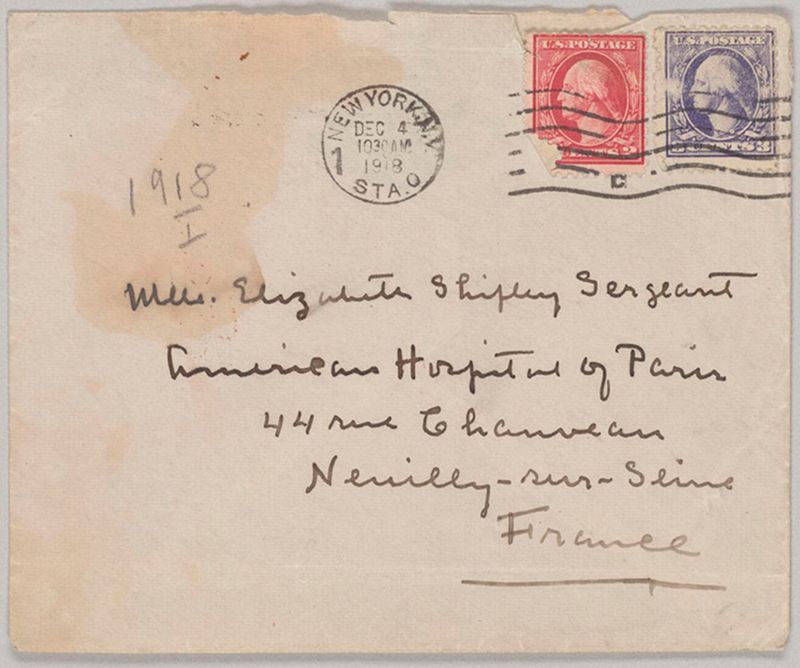 U.S. POSTAGE
U.S. POSTAGE
NEW YORK, N.Y.
DEC 4
1030AM
1918
1
STA. O
CENTS 2
3 CENTS 3
C
1918
I
Mlle. Elizabeth Shipley Sergeant
American Hospital of Paris
44 rue Chauveau
Neuilly-sur-Seine
France